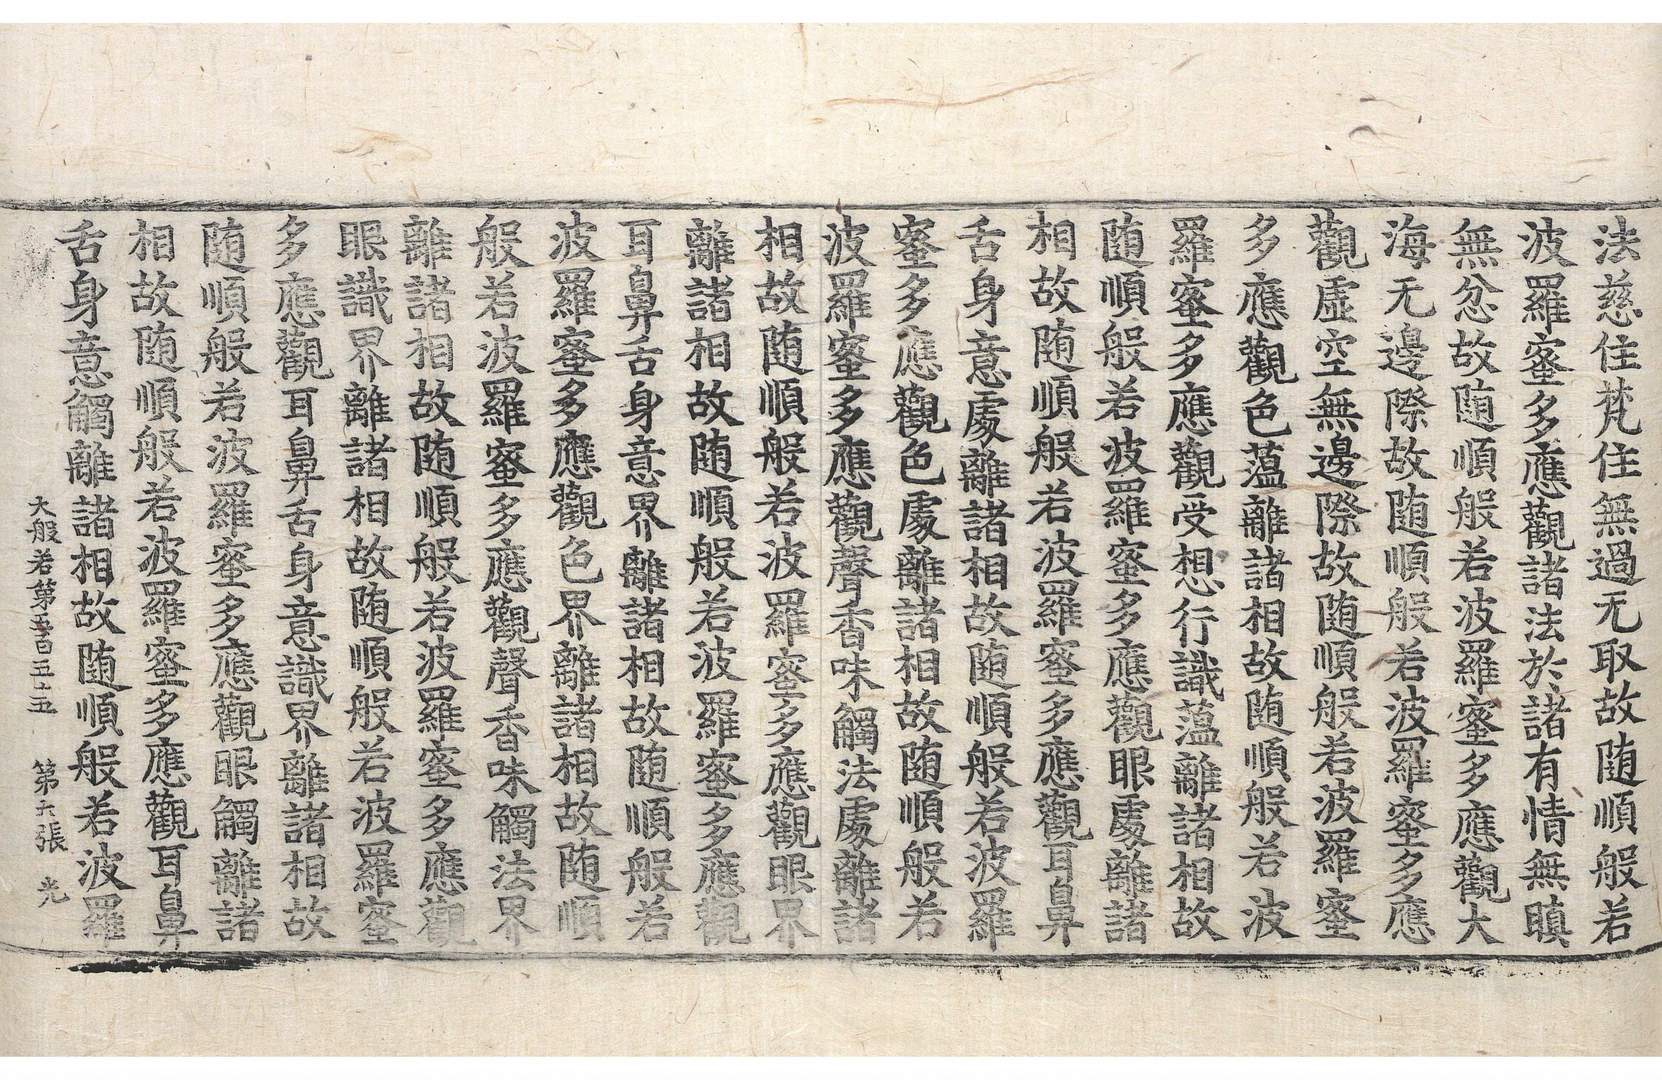 法慈住梵住無過无取故随順般若
波羅蜜多應觀諸法於諸有情無瞋
無忿故随順般若波羅蜜多應觀大
海无邊際故随順般若波羅蜜多應
觀虛空無邊際故随順般若波羅蜜
多應觀色薀離諸相故随順般若波
羅蜜多應觀受想行識薀離諸相故
随順般若波羅蜜多應觀眼處離諸
相故随順般若波羅蜜多應觀耳鼻
舌身意處離諸相故随順般若波羅
蜜多應觀色處離諸相故随順般若
波羅蜜多應觀聲香味觸法處離諸
相故随順般若波羅蜜多應觀眼界
離諸相故随順般若波羅蜜多應觀
耳鼻舌身意界離諸相故随順般若
波羅蜜多應觀色界離諸相故随順
般若波羅蜜多應觀聲香味觸法界
離諸相故随順般若波羅蜜多應觀
眼識界離諸相故随順般若波羅蜜
多應觀耳鼻舌身意識界離諸相故
随順般若波羅蜜多應觀眼觸離諸
相故随順般若波羅蜜多應觀耳鼻
舌身意觸離諸相故随順般若波羅
大般若第五百五十五 第六張 光